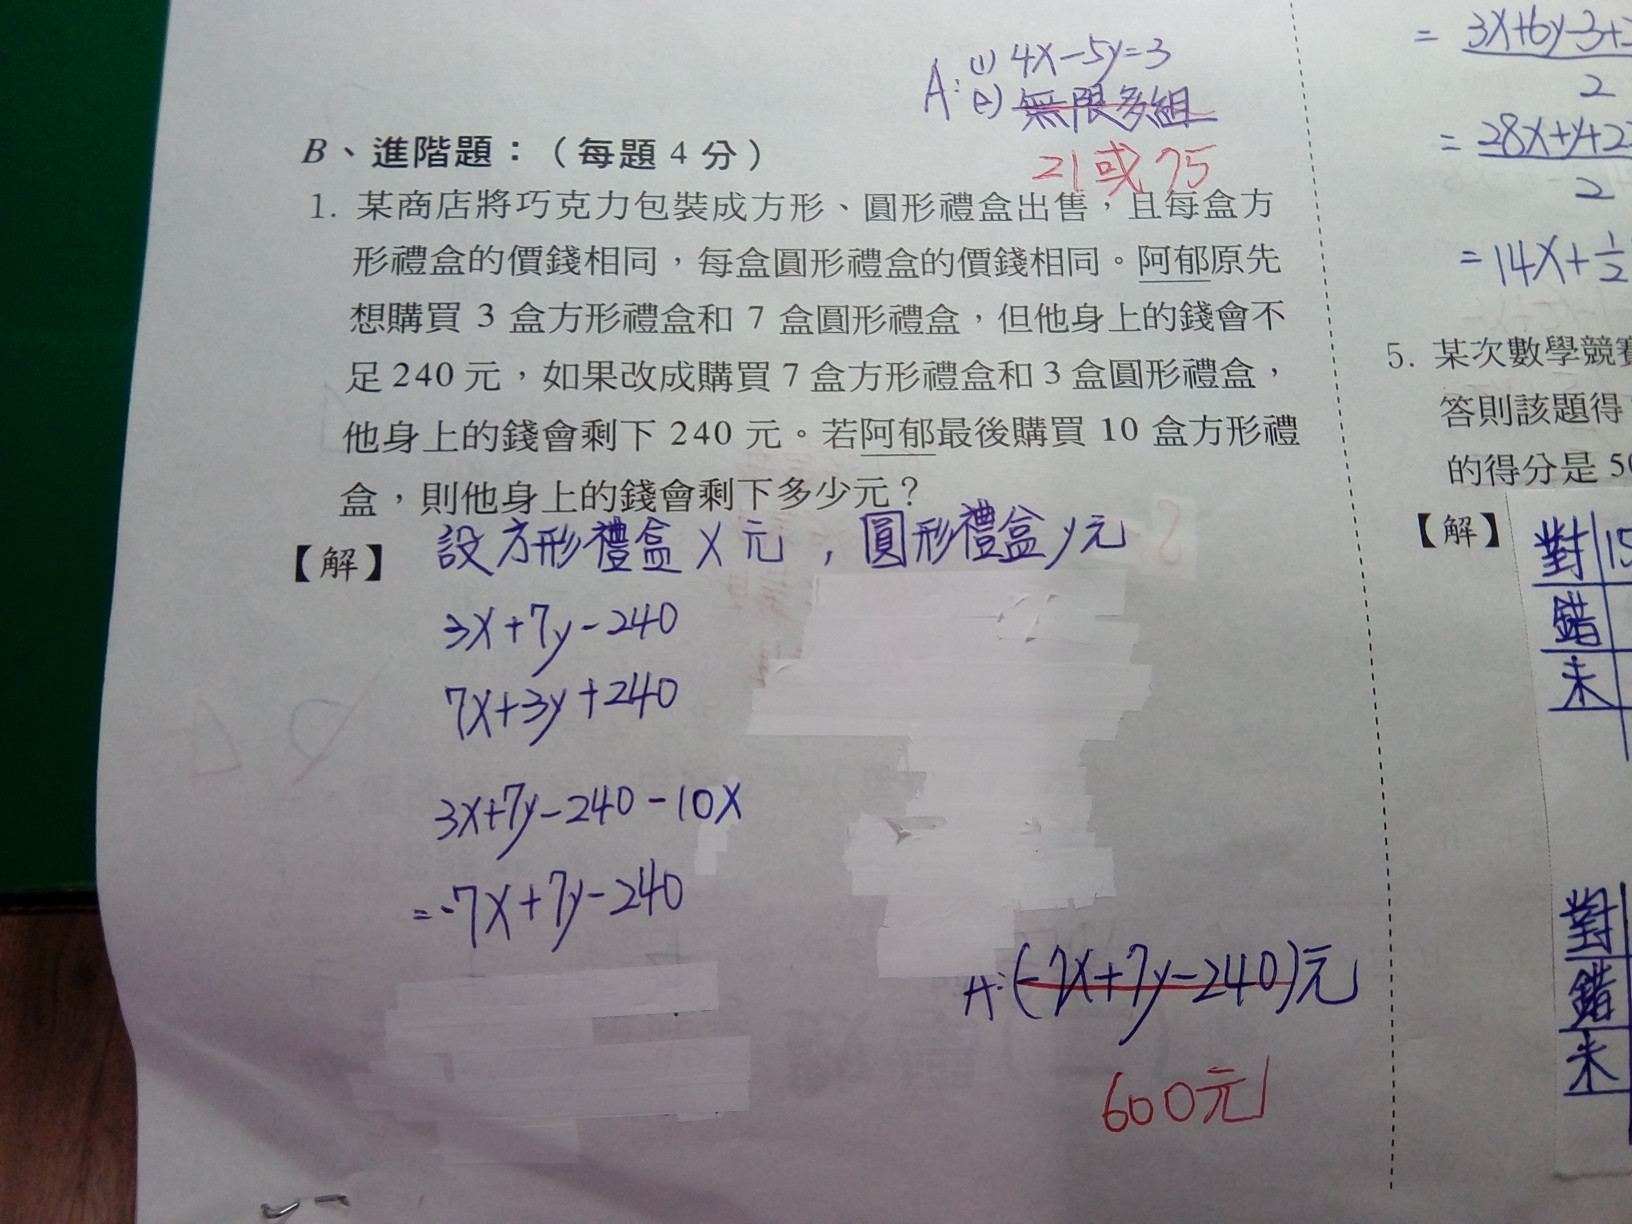 A: (1) 4x-5y=3
(2) 無限多組
21或75
B、進階題：（每題 4 分）
1. 某商店將巧克力包裝成方形、圓形禮盒出售，且每盒方
形禮盒的價錢相同，每盒圓形禮盒的價錢相同。阿郁原先
想購買 3 盒方形禮盒和 7 盒圓形禮盒，但他身上的錢會不
足 240 元，如果改成購買 7 盒方形禮盒和 3 盒圓形禮盒，
他身上的錢會剩下 240 元。若阿郁最後購買 10 盒方形禮
盒，則他身上的錢會剩下多少元？
【解】 設方形禮盒 x 元，圓形禮盒 y 元
3x+7y-240
7x+3y+240
3x+7y-240-10x
=-7x+7y-240
A:(-7x+7y-240)元
600元
= 3x+6y-3+
2
= 28x+y+2
2
= 14x+1/2
5. 某次數學競賽
答則該題得
的得分是 50
【解】
對 15
錯
未
對
錯
未